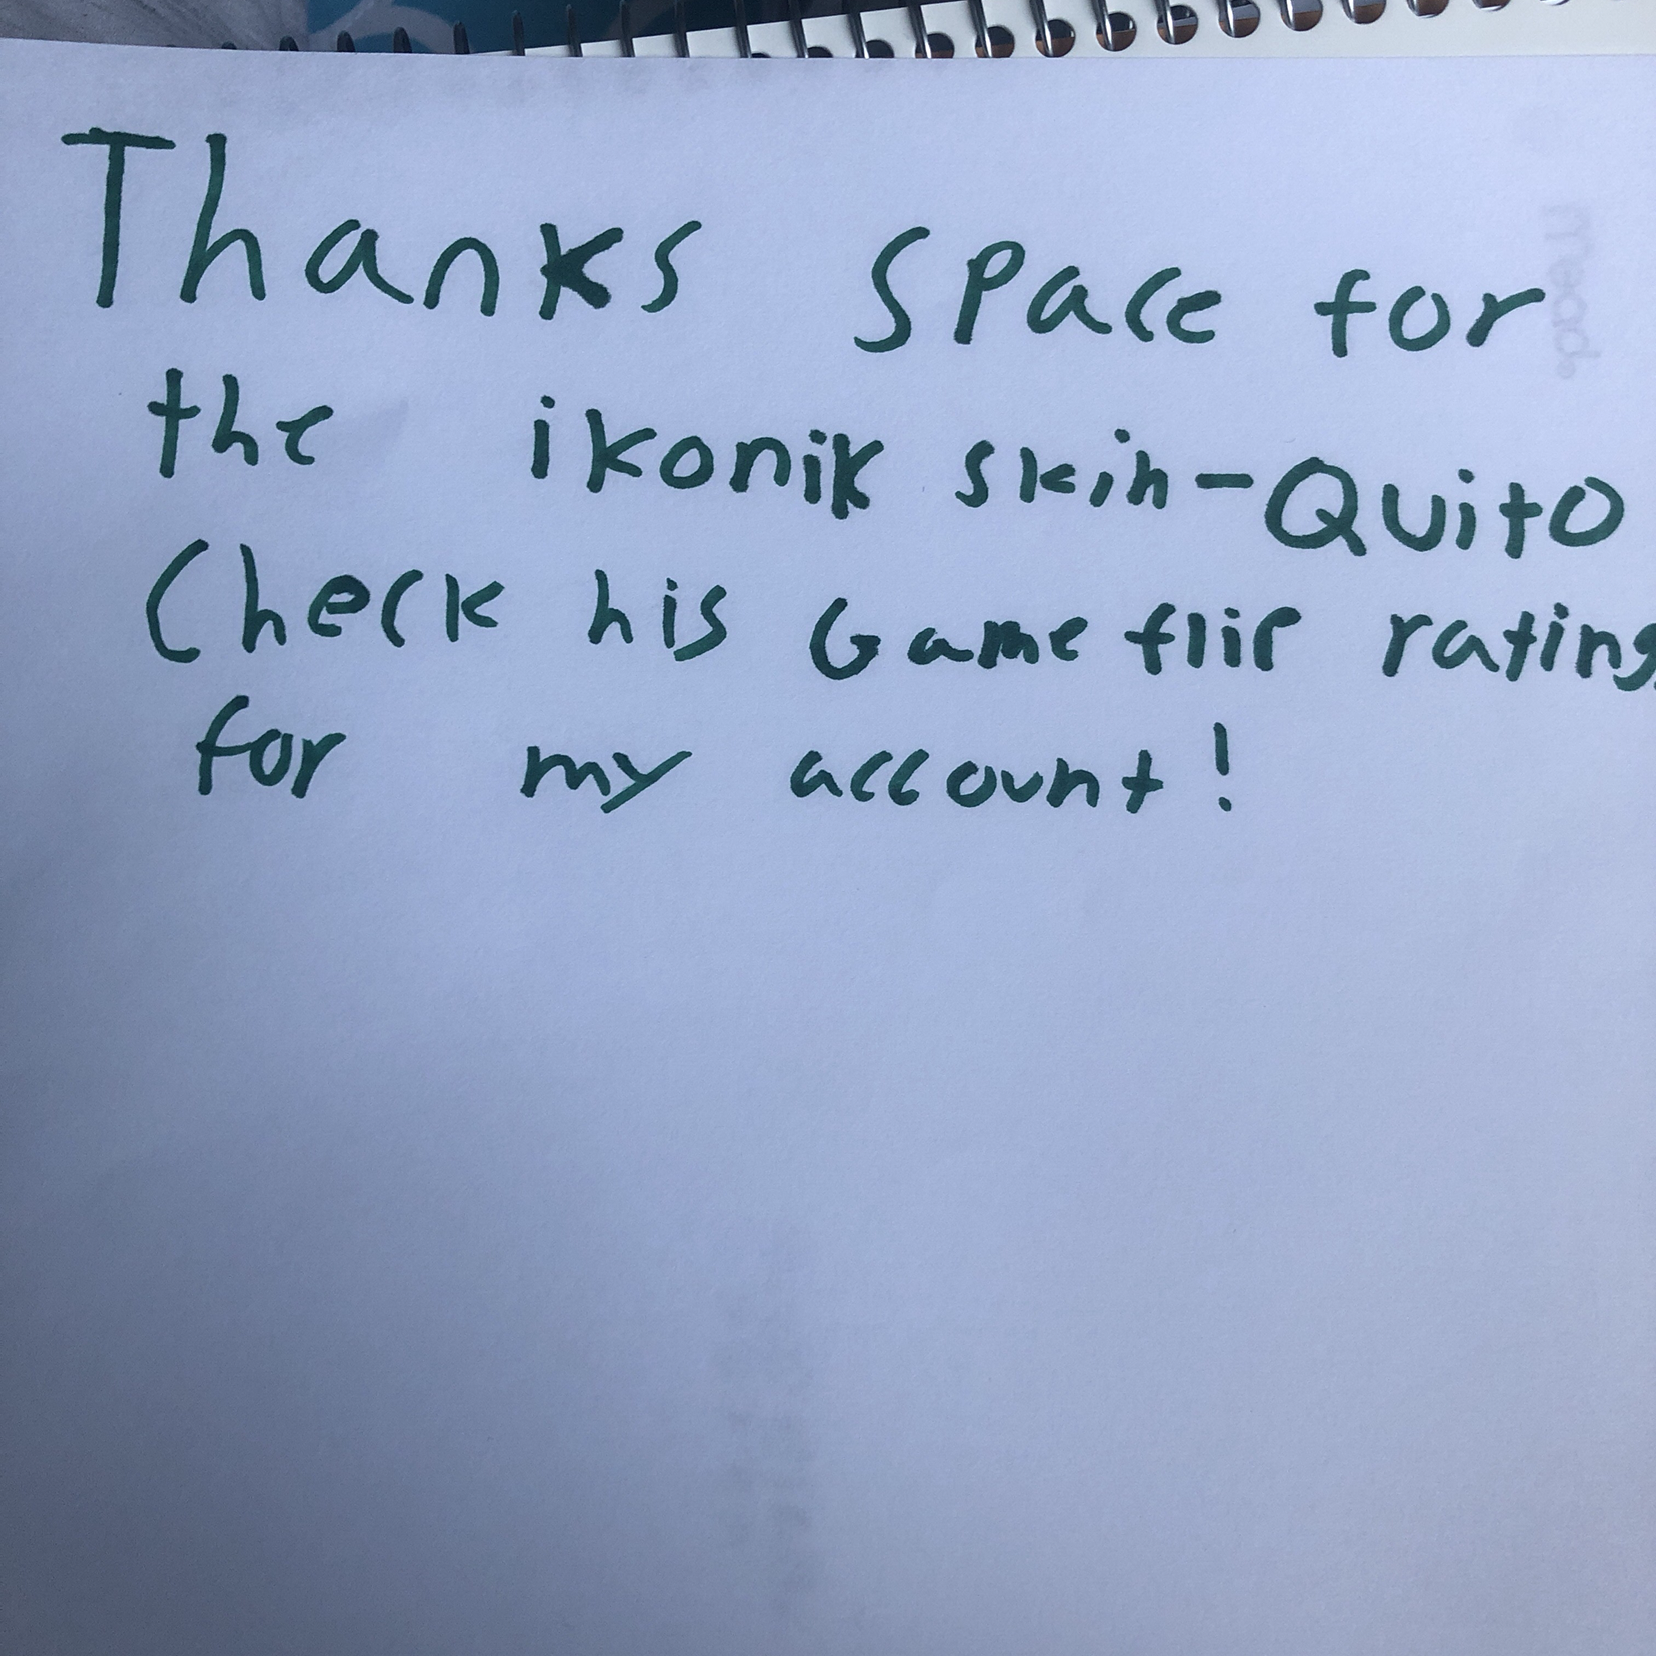 Thanks Space for
the ikonik skin-Quito
Check his Gameflip rating
for my account!